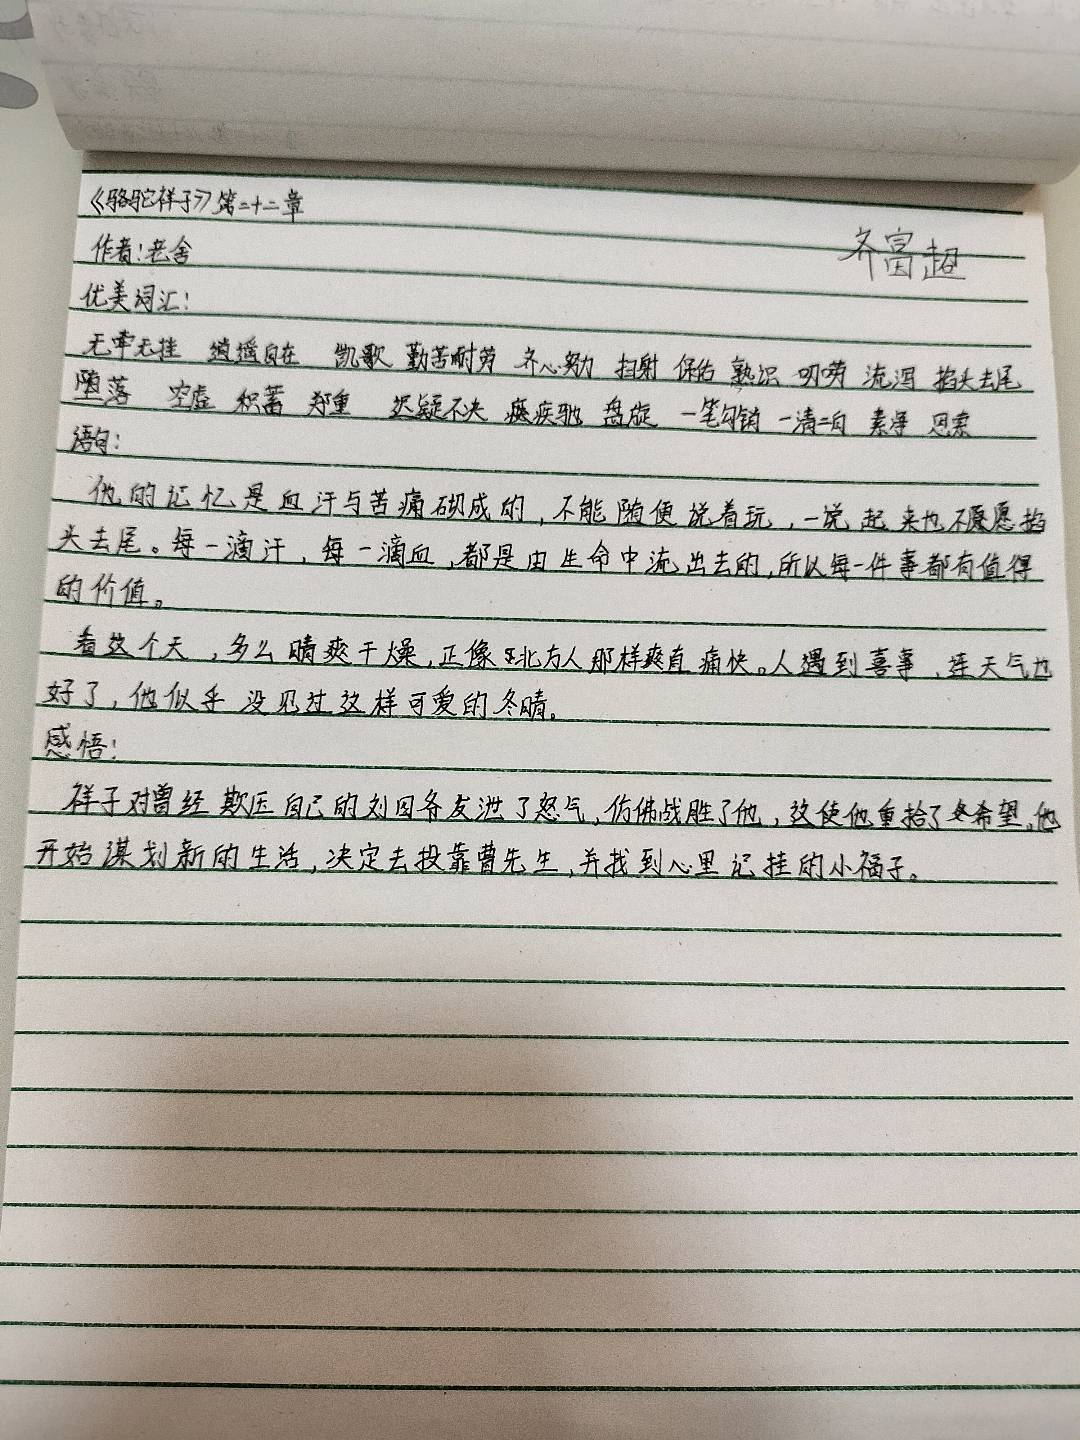 《骆驼祥子》第二十二章
齐富超
作者:老舍
优美词汇:
无牵无挂 逍遥自在 凯歌 勤苦耐劳 齐心努力 扫射 保佑 熟识 叨唠 流泻 掐头去尾
堕落 空虚 积蓄 郑重 迟疑不决 疾驰 盘旋 一笔勾销 一清二白 素净 思索
语句:
他的记忆是血汗与苦痛砌成的,不能随便说着玩,一说起来也不愿掐
头去尾。每一滴汗,每一滴血,都是由生命中流出去的,所以每一件事都有值得
的价值。
看这个天,多么晴爽干燥,正像北方人那样爽直痛快。人遇到喜事,连天气也
好了,他似乎没见过这样可爱的冬晴。
感悟:
祥子对曾经欺压自己的刘四爷发泄了怒气,仿佛战胜了他,这使他重拾了希望,他
开始谋划新的生活,决定去投靠曹先生,并找到心里记挂的小福子。